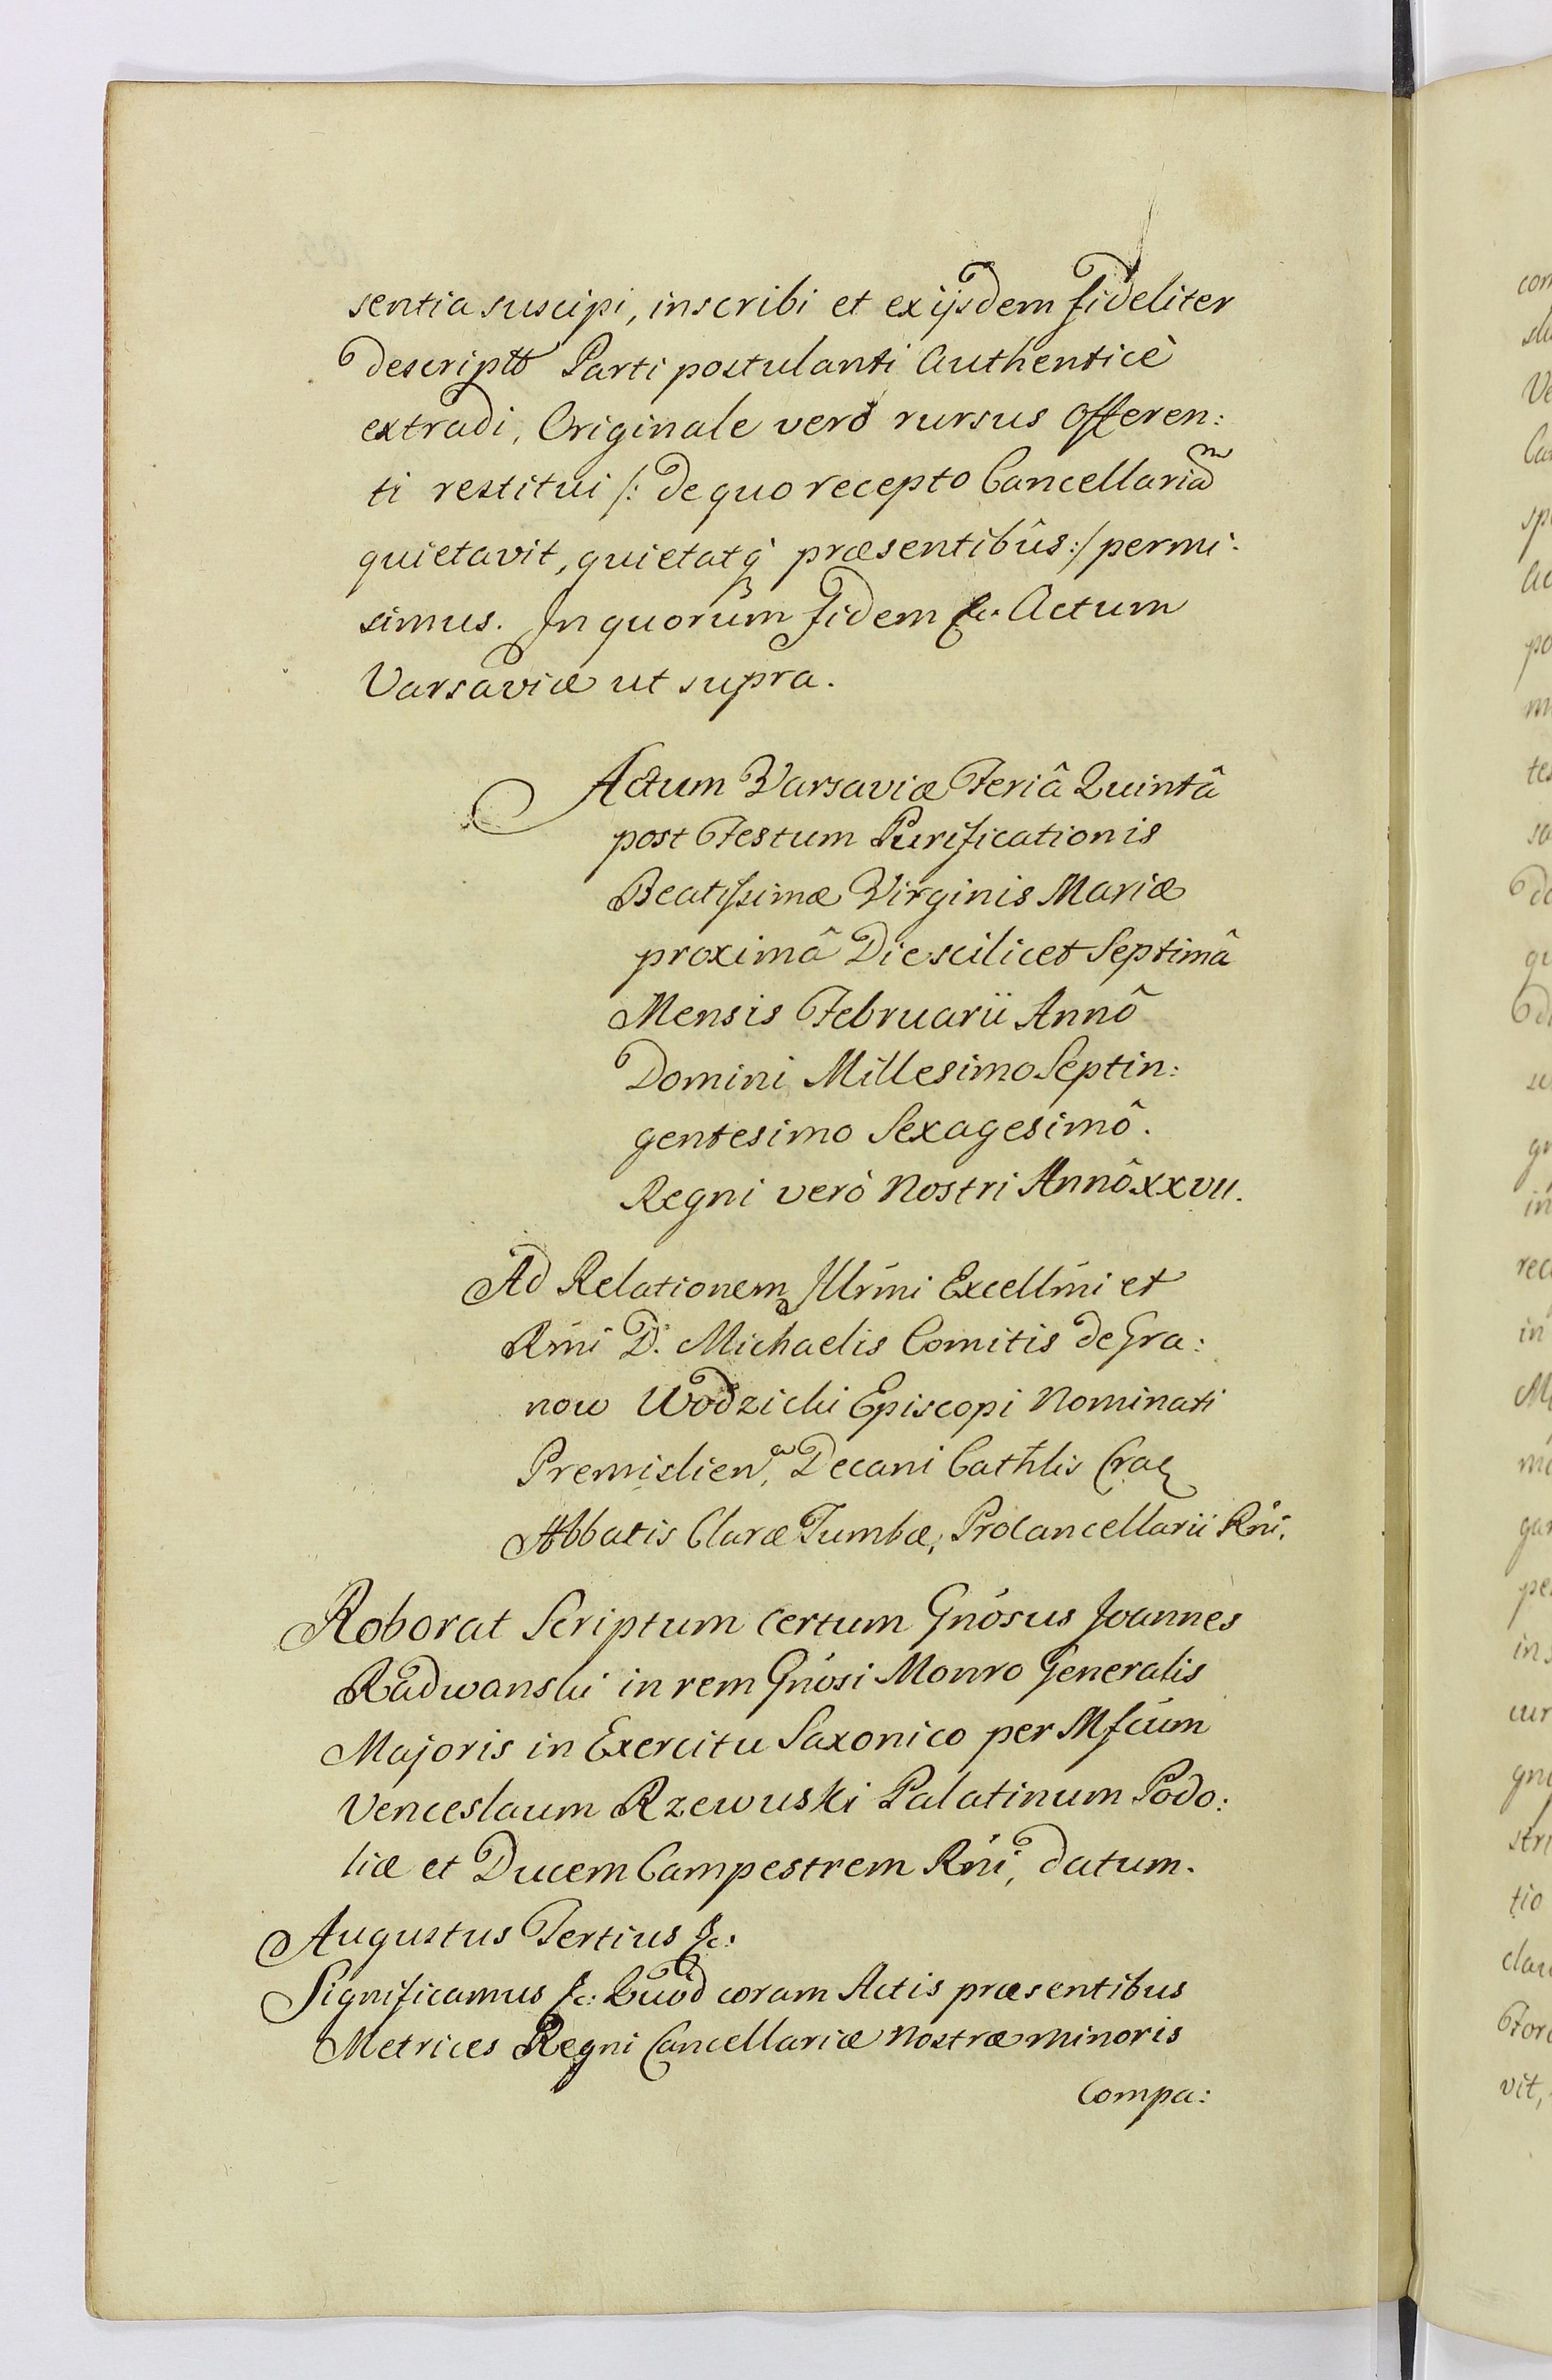 sentia suscipi, inscribi et ex ijsdem fideliter
descriptt Parti postulanti Authenticè
extradi, Originale verò rursus Offeren:
ti restitui /: de quo recepto Cancellariam
quietavit, quietatq̀ præsentibûs :/ permi:
simus. In quorum fidem &c. Actum
Varsaviæ ut supra.
Actum Varsaviæ Feriâ Quintâ
post Festum Purificationis
Beatissimæ Virginis Mariæ
proximâ Die scilicet Septimâ
Mensis Februarii Annô
Domini Millesimo Septin:
gentesimo Sexagesimô.
Regni verò Nostri Annô XXVII.
Ad Relationem Illrmi Excellmi et
Rmi D. Michaelis Comitis de Gra:
now Wodzicki Episcopi Nominati
Premislien, Decani Cathlis Crac
Abbatis Claræ Tumbæ, Procancellarii Rni.
Roborat Scriptum certum Gnosus Joannes
Radwanski in rem Gnosi Monro Generalis
Majoris in Exercitu Saxonico per Mfcum
Venceslaum Rzewuski Palatinum Podo:
liæ et Ducem Campestrem Rni, datum.
Augustus Tertius &c:
Significamus &c: Quod coram Actis præsentibus
Metrices Regni Cancellariæ Nostræ minoris
Compa: